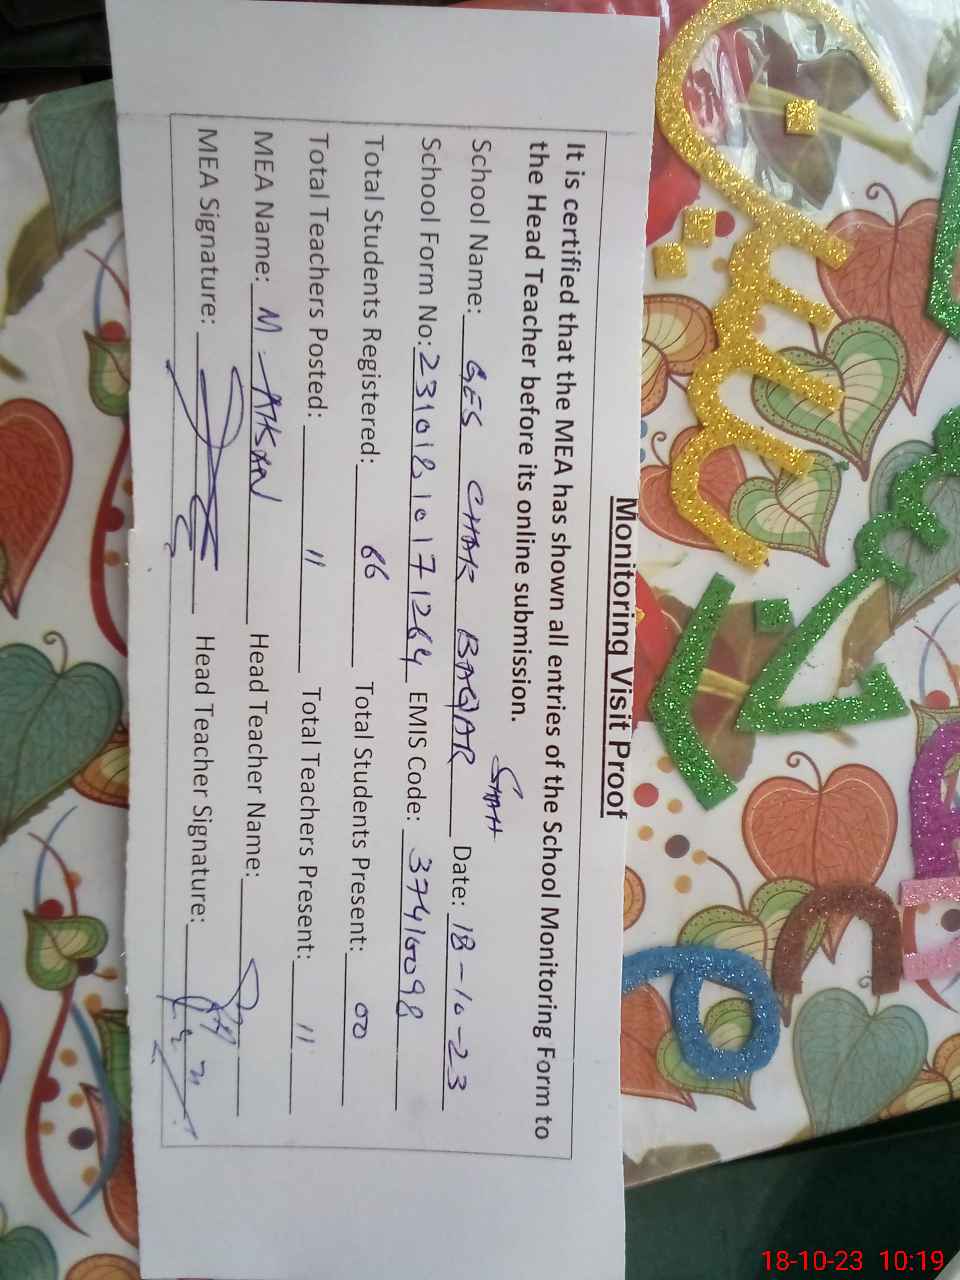 Monitoring Visit Proof
It is certified that the MEA has shown all entries of the School Monitoring Form to
the Head Teacher before its online submission.
School Name: GES CHAK BAQAR SHAH Date: 18-10-23
School Form No: 23101810171264 EMIS Code: 37410098
Total Students Registered: 66 Total Students Present: 00
Total Teachers Posted: 11 Total Teachers Present: 11
MEA Name: M AHSAN Head Teacher Name:
MEA Signature: Head Teacher Signature:
18-10-23 10:19